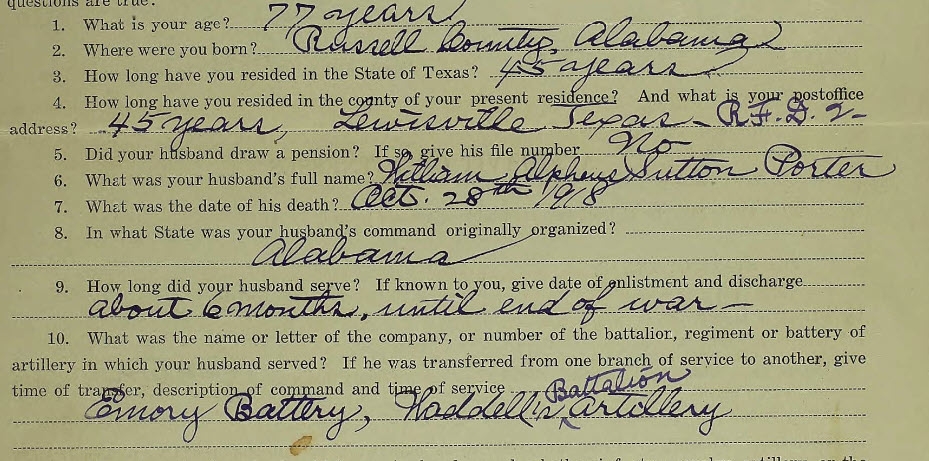 questions are true:
1. What is your age? 77 years
2. Where were you born? Russell County, Alabama
3. How long have you resided in the State of Texas? 45 years
4. How long have you resided in the county of your present residence? And what is your postoffice
address? 45 years, Lewisville Texas - R.F.D. 2-
5. Did your husband draw a pension? If so, give his file number No
6. What was your husband's full name? William Alpheus Sutton Porter
7. What was the date of his death? Oct. 28th 1918
8. In what State was your husband's command originally organized?
Alabama
9. How long did your husband serve? If known to you, give date of enlistment and discharge
about 6 months, until end of war -
10. What was the name or letter of the company, or number of the battalion, regiment or battery of
artillery in which your husband served? If he was transferred from one branch of service to another, give
time of transfer, description of command and time of service Battalion
Emory Battery, Waddell's Artillery